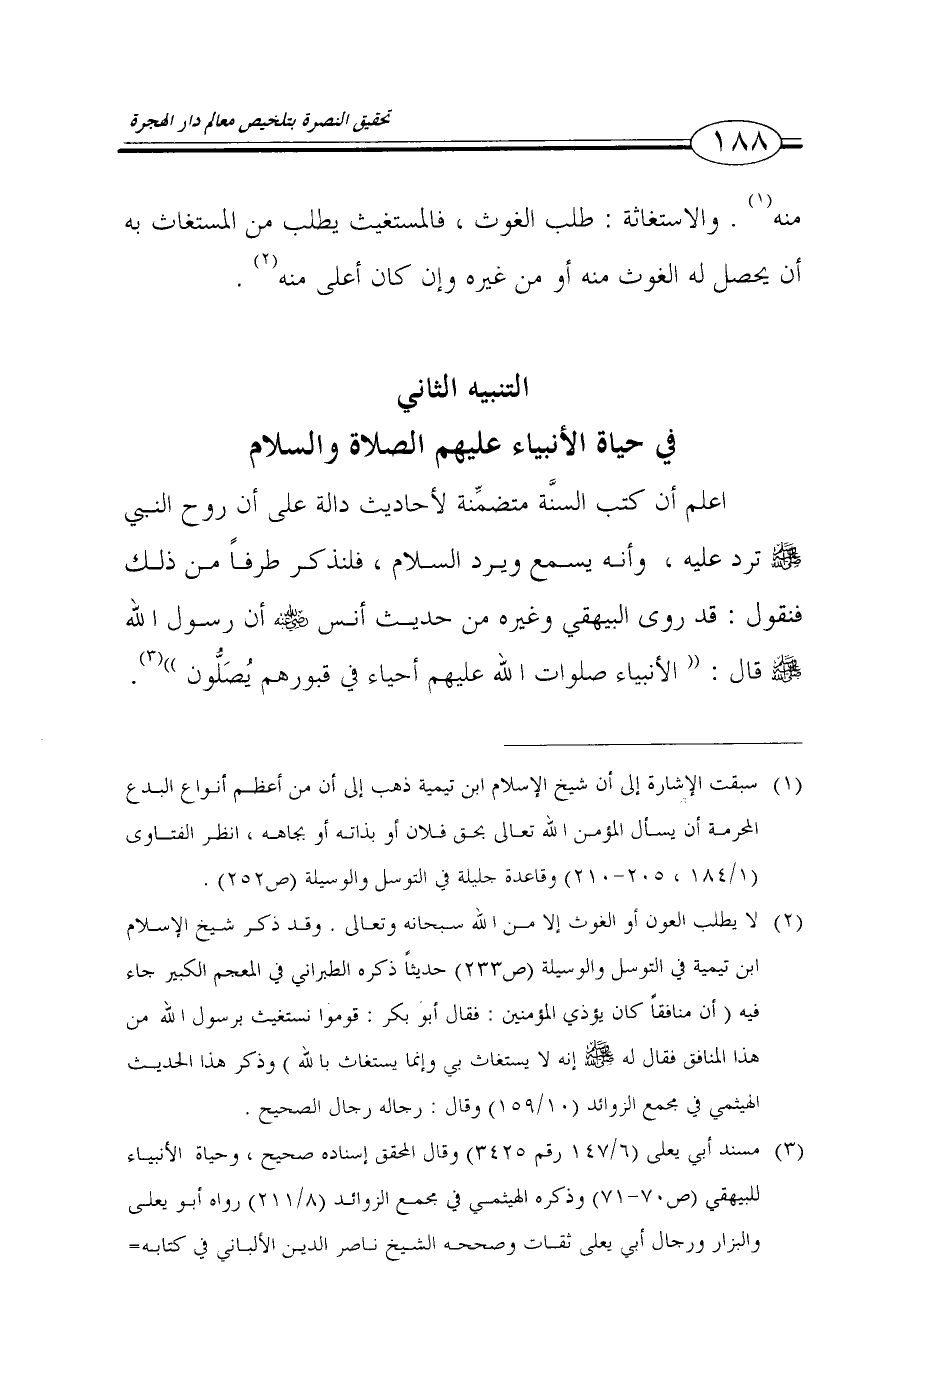 تحقيق النصرة بتلخيص معالم دار الهجرة
١٨٨
منه(١) . والاستغاثة : طلب الغوث ، فالمستغيث يطلب من المستغاث به
أن يحصل له الغوث منه أو من غيره وإن كان أعلى منه(٢) .
التنبيه الثاني
في حياة الأنبياء عليهم الصلاة والسلام
اعلم أن كتب السنَّة متضمِّنة لأحاديث دالة على أن روح النبي
ﷺ ترد عليه ، وأنه يسمع ويرد السلام ، فلنذكر طرفاً من ذلك
فنقول : قد روى البيهقي وغيره من حديث أنس رضي الله عنه أن رسول الله
ﷺ قال : (( الأنبياء صلوات الله عليهم أحياء في قبورهم يُصَلُّون ))(٣).
(١) سبقت الإشارة إلى أن شيخ الإسلام ابن تيمية ذهب إلى أن من أعظم أنواع البدع
المحرمة أن يسأل المؤمن الله تعالى بحق فلان أو بذاته أو بجاهه ، انظر الفتاوى
(١٨٤/١ ، ٢٠٥-٢١٠) وقاعدة جليلة في التوسل والوسيلة (ص٢٥٢) .
(٢) لا يطلب العون أو الغوث إلا من الله سبحانه وتعالى . وقد ذكر شيخ الإسلام
ابن تيمية في التوسل والوسيلة (ص٢٣٣) حديثاً ذكره الطبراني في المعجم الكبير جاء
فيه ( أن منافقاً كان يؤذي المؤمنين : فقال أبو بكر : قوموا نستغيث برسول الله من
هذا المنافق فقال له ﷺ إنه لا يستغاث بي وإنما يستغاث بالله ) وذكر هذا الحديث
الهيثمي في مجمع الزوائد (١٥٩/١٠) وقال : رجاله رجال الصحيح .
(٣) مسند أبي يعلى (١٤٧/٦ رقم ٣٤٢٥) وقال المحقق إسناده صحيح ، وحياة الأنبياء
للبيهقي (ص٧٠-٧١) وذكره الهيثمي في مجمع الزوائد (٢١١/٨) رواه أبو يعلى
والبزار ورجال أبي يعلى ثقات وصححه الشيخ ناصر الدين الألباني في كتابه=